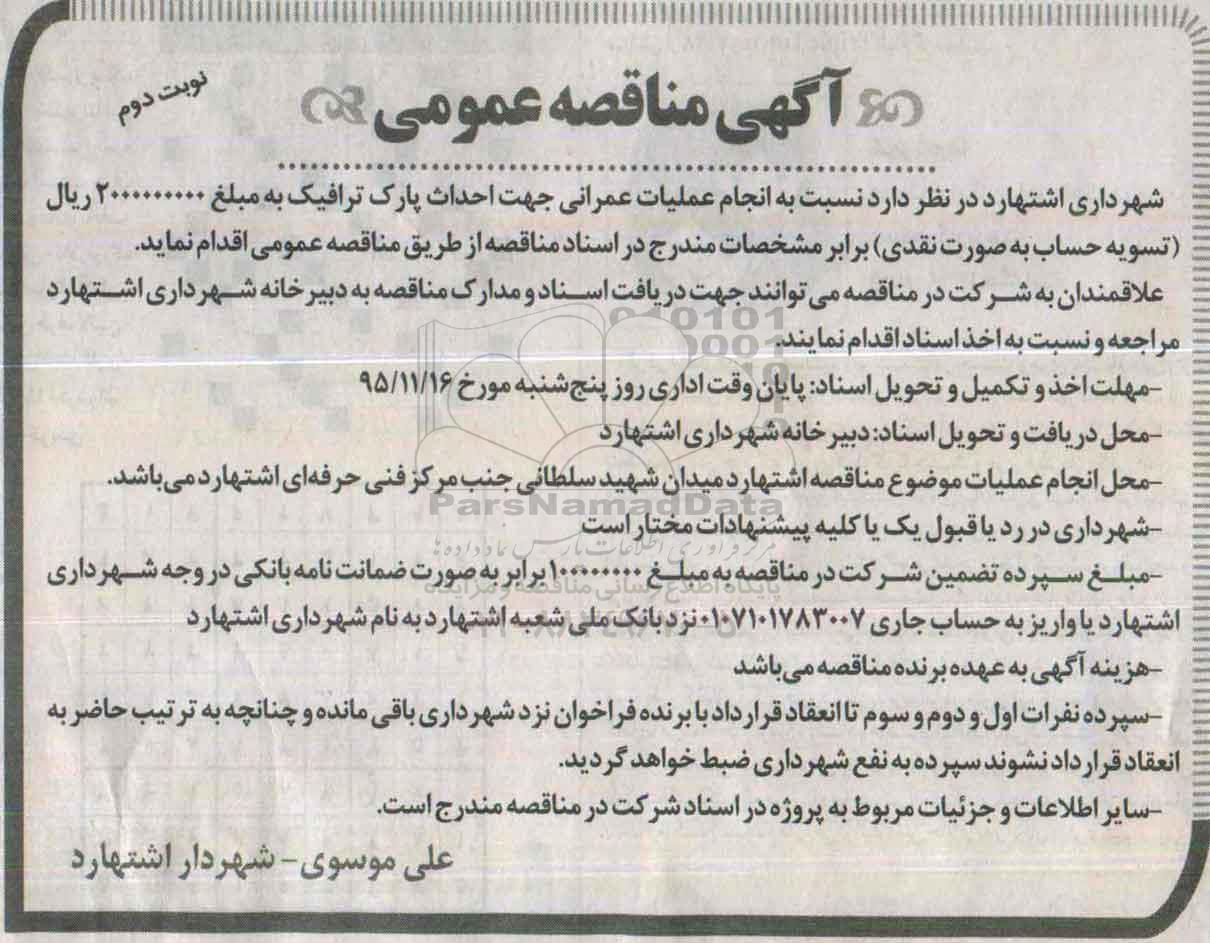 آگهی مناقصه عمومی
نوبت دوم
شهرداری اشتهارد در نظر دارد نسبت به انجام عملیات عمرانی جهت احداث پارک ترافیک به مبلغ ۲۰۰۰۰۰۰۰۰۰ ریال
(تسویه حساب به صورت نقدی) برابر مشخصات مندرج در اسناد مناقصه از طریق مناقصه عمومی اقدام نماید.
علاقمندان به شرکت در مناقصه می‌توانند جهت دریافت اسناد و مدارک مناقصه به دبیرخانه شهرداری اشتهارد
مراجعه و نسبت به اخذ اسناد اقدام نمایند.
-مهلت اخذ و تکمیل و تحویل اسناد: پایان وقت اداری روز پنج‌شنبه مورخ ۹۵/۱۱/۱۶
-محل دریافت و تحویل اسناد: دبیرخانه شهرداری اشتهارد
-محل انجام عملیات موضوع مناقصه اشتهارد میدان شهید سلطانی جنب مرکز فنی حرفه‌ای اشتهارد می‌باشد.
ParsNamadData
-شهرداری در رد یا قبول یک یا کلیه پیشنهادات مختار است
مرکز فرآوری اطلاعات پارس نماد داده‌ها
-مبلغ سپرده تضمین شرکت در مناقصه به مبلغ ۱۰۰۰۰۰۰۰۰ برابر به صورت ضمانت نامه بانکی در وجه شهرداری
پایگاه اطلاع رسانی مناقصه و مزایده
اشتهارد یا واریز به حساب جاری ۰۱۰۷۱۰۱۷۸۳۰۰۷ نزد بانک ملی شعبه اشتهارد به نام شهرداری اشتهارد
-هزینه آگهی به عهده برنده مناقصه می‌باشد
-سپرده نفرات اول و دوم و سوم تا انعقاد قرارداد با برنده فراخوان نزد شهرداری باقی مانده و چنانچه به ترتیب حاضر به
انعقاد قرارداد نشوند سپرده به نفع شهرداری ضبط خواهد گردید.
-سایر اطلاعات و جزئیات مربوط به پروژه در اسناد شرکت در مناقصه مندرج است.
علی موسوی- شهردار اشتهارد